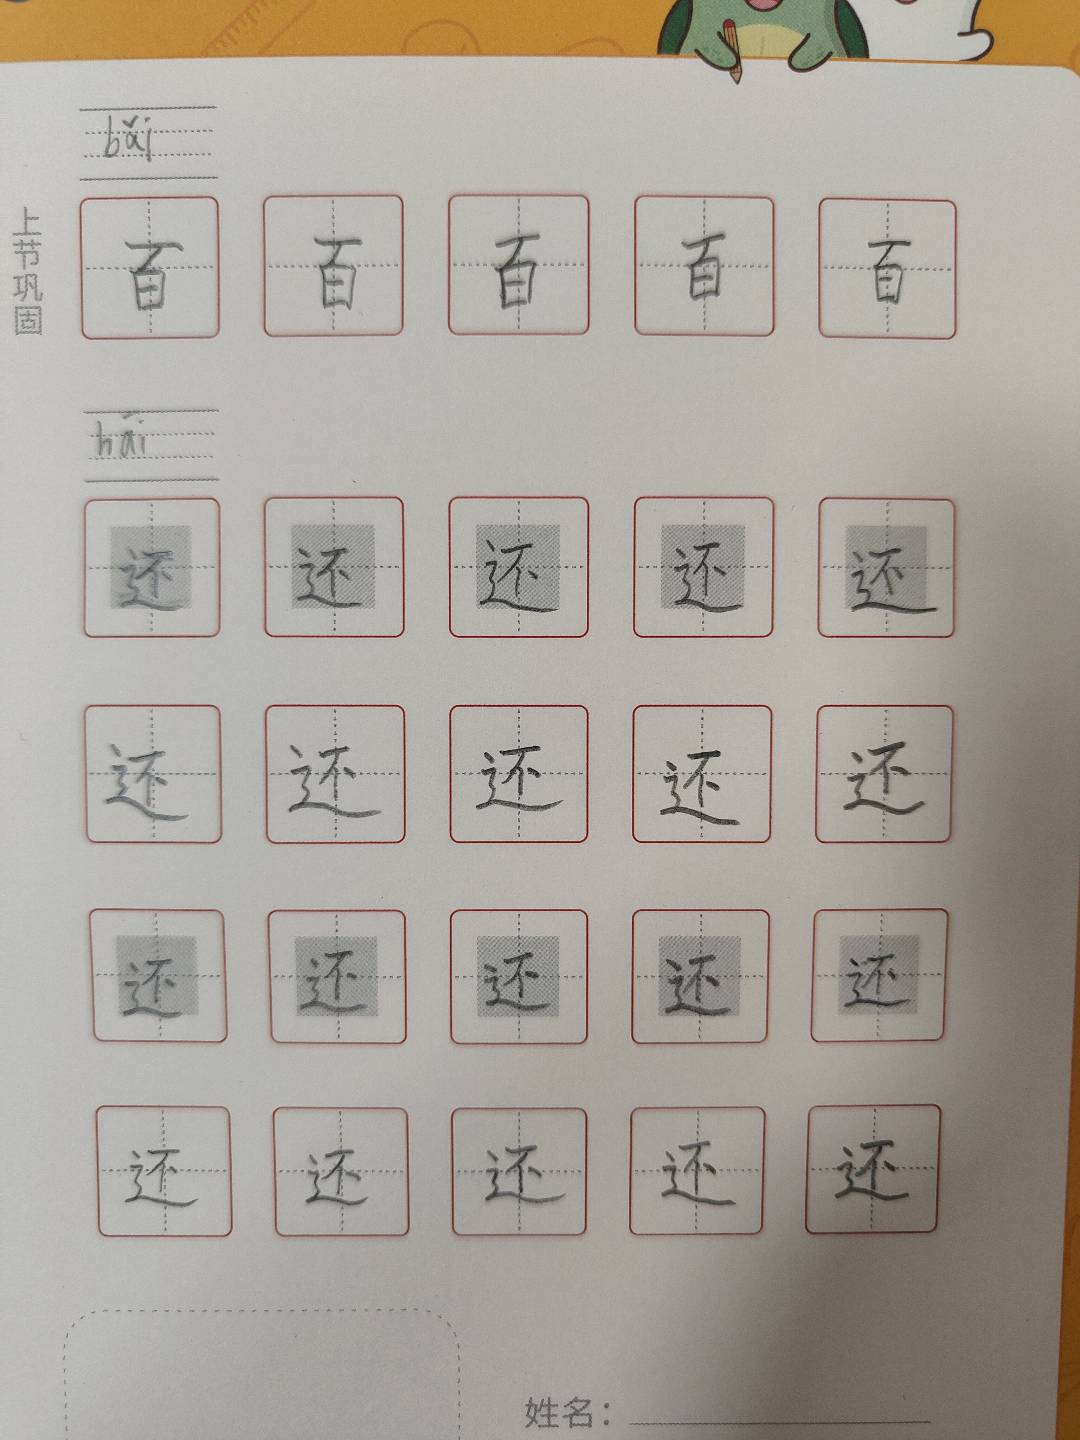 bǎi
上节巩固
百 百 百 百 百
hái
还 还 还 还 还
还 还 还 还 还
还 还 还 还 还
还 还 还 还 还
姓名：